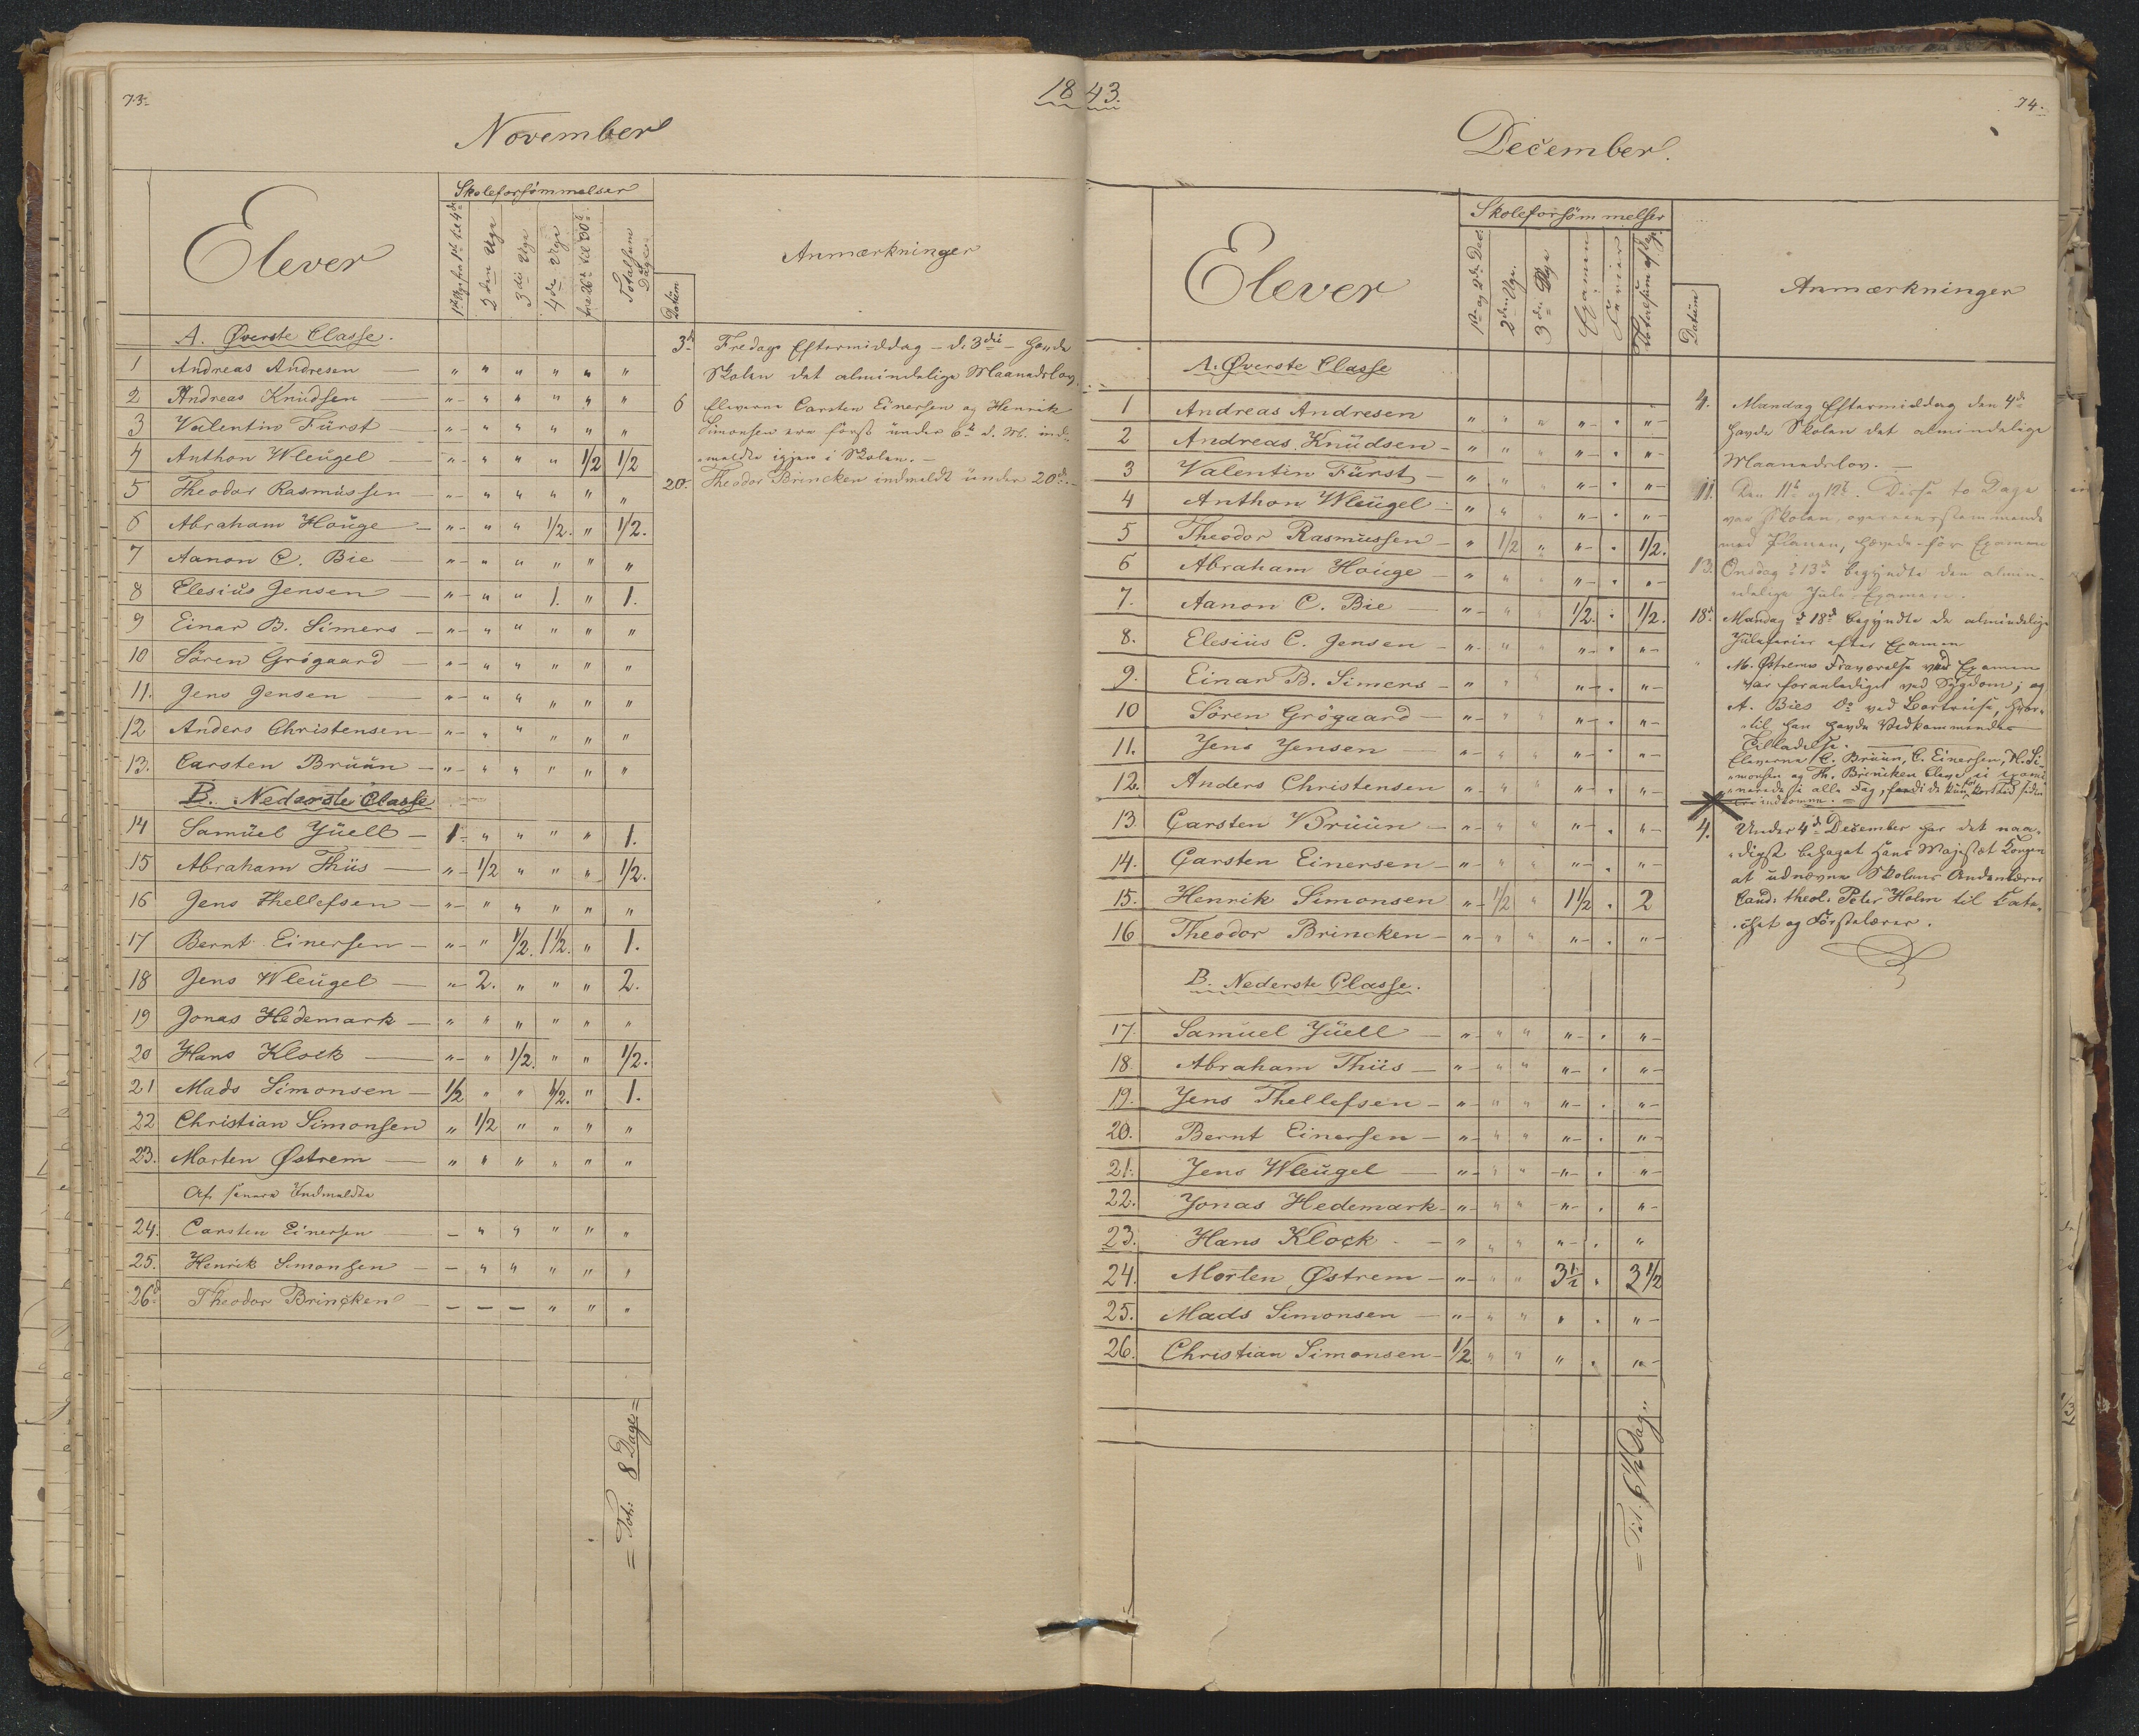 73.
1843.
74.
November
Skoleforsømmelser
Elever
1ste Uge fra 1ste til 4de
2den Uge
3die Uge
4de Uge
fra 26de til 30te
Totalsum Dage
Datum
Anmærkninger
A. Øverste Classe.
1 Andreas Andresen — " " " " " "
2 Andreas Knüdsen — " " " " " "
3 Valentin Fürst — " " " " " "
4 Anthon Wleügel — " " " " 1/2 1/2
5 Theodor Rasmüssen — " " " " " "
6 Abraham Houge — " " " 1/2. " 1/2.
7 Aanon C. Bie — " " " " " "
8 Elesiüs Jensen — " " " 1. " 1.
9 Einar B. Simers — " " " " " "
10 Sören Grögaard — " " " " " "
11. Jens Jensen — " " " " " "
12 Anders Christensen — " " " " " "
13. Carsten Brüün — " " " " " "
B. Nederste Classe
14 Samüel Jüell — 1 " " " " 1.
15 Abraham Thiis — " 1/2 " " " 1/2.
16 Jens Thellefsen — " " " " " "
17 Bernt Einersen — " " 1/2. 1 1/2. " 1.
18 Jens Wleügel — " 2. " " " 2.
19 Jonas Hedemark — " " " " " "
20 Hans Klock — " " 1/2. " " 1/2.
21 Mads Simonsen — 1/2 " " 1/2. " 1.
22 Christian Simonsen " 1/2 " " " "
23. Morten Østrem — " " " " " "
Af senere Indmeldte
24. Carsten Einersen — — " " " " "
25. Henrik Simonsen — — " " " " "
26d Theodor Brincken — — — — " " "
= Tot: 8 Dage =
3d Fredags Eftermiddag – d. 3die – havde
Skolen det almindelige Maanedslov.
6 Eleverne Carsten Einersen og Henrik
Simonsen ere først ünder 6te d. M. ind-
meldte igjen i Skolen. —
20. Theodor Brincken indmeldt ünder 20de. —
December.
Skoleforsømmelser
Elever
1ste og 2den Dec.
2den Uge.
3die Uge
Examen
Ferier
Totalsum af Dage.
Datüm
Anmærkninger
A. Øverste Classe
1 Andreas Andresen " " " " . "
2 Andreas Knüdsen — " " " " . "
3 Valentin Fürst — " " " " . "
4 Anthon Wleügel — " " " " . "
5 Theodor Rasmüssen — " 1/2 " " . 1/2.
6 Abraham Houge — " " " " . "
7. Aanon C. Bie — " " " 1/2. . 1/2.
8. Elesiüs C. Jensen — " " " " . "
9. Einar B. Simers — " " " " . "
10 Sören Grögaard — " " " " . "
11. Jens Jensen — " " " " . "
12. Anders Christensen " " " " . "
13. Carsten Brüün — " " " " . "
14. Carsten Einersen — " " " " . "
15. Henrik Simonsen " 1/2 " 1 1/2 . 2
16 Theodor Brincken — " " " " . "
B. Nederste Classe.
17. Samuel Jüell — " " " " . "
18. Abraham Thiis — " " " " . "
19. Jens Thellefsen — " " " " . "
20. Bernt Einersen — " " " " . "
21. Jens Wleügel — " " " " . "
22. Jonas Hedemark — " " " " . "
23. Hans Klock — " " " " . "
24. Morten Østrem — " " " 3 1/2 . 3 1/2
25. Mads Simonsen — " " " " . "
26. Christian Simonsen — 1/2. " " " . "
= Tot. 6 1/2 Dag "
4. Mandag Eftermiddag den 4de
havde Skolen det almindelige
Maanedslov. —
11. Den 11te og 12te. Disse to Dage
var Skolen, overeenstemmende
med Planen, hævede før Examen
13. Onsdag d 13de begyndte den almin-
delige Jule-Examen.
18d. Mandag d 18de begyndte de almindelige
Juleferier efter Examen
" M. Østrems Fraværelse ved Examen
var foranlediget ved Sygdom; og
A. Bies Do ved Bortreise, hvor-
til han havde Vedkommendes
Tilladelse. —
Eleverne C. Brüün, C. Einersen, H. Si-
monsen og Th. Brincken bleve ei exami-
nerede i alle Fag, fordi de kün for kort tid siden
ere indkomne. —
4. Under 4de December har det naa-
digst behaget Hans Majestæt Kongen
at udnævne Skolens Andenlærer
Cand. theol. Peter Holm til Cate-
chet og Førstelærer.